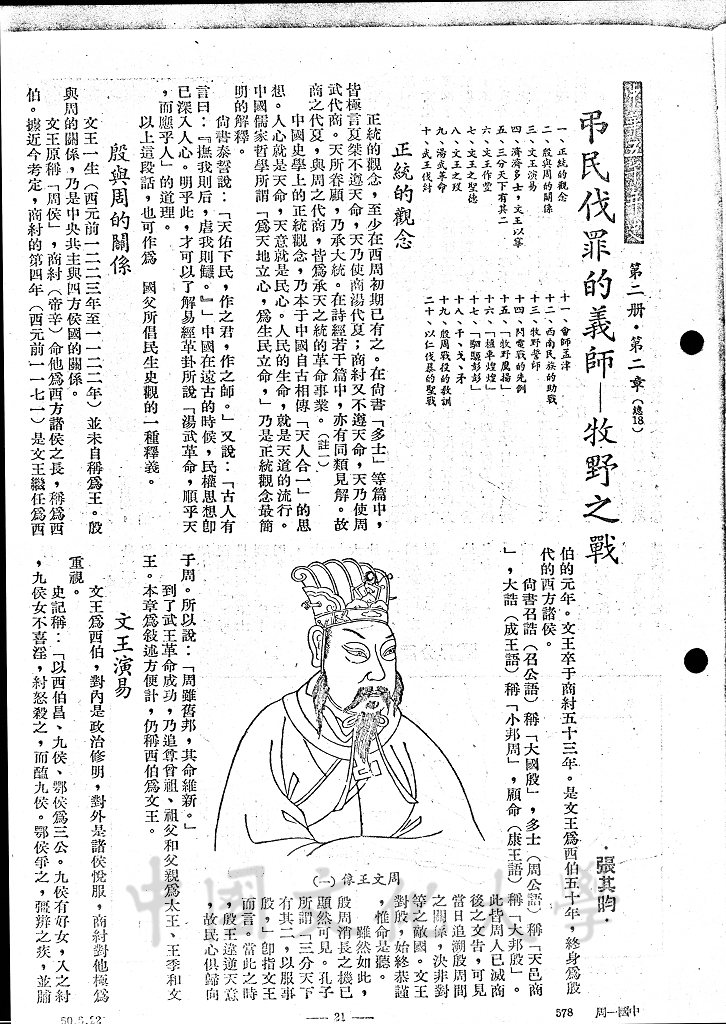 中華五千年史
第二册·第二章（總18）
弔民伐罪的義師—牧野之戰
·張其昀·
一、正統的觀念
二、殷與周的關係
三、文王演易
四、濟濟多士，文王以寧
五、三分天下有其二
六、文王作豐
七、文王之聖德
八、文王之歿
九、湯武革命
十、武王伐紂
十一、會師孟津
十二、西南民族的助戰
十三、牧野誓師
十四、閃電戰的先例
十五、「牧野鷹揚」
十六、「檀車煌煌」
十七、「駟騵彭彭」
十八、干、戈、矛
十九、殷周戰役的教訓
二十、以仁伐暴的聖戰
正統的觀念
正統的觀念，至少在西周初期已有之。在尙書「多士」等篇中，
皆極言夏桀不遵天命，天乃使商湯代夏；商紂又不遵天命，天乃使周
武代商。天所眷顧，乃承大統。在詩經若干篇中，亦有同類見解。故
商之代夏，與周之代商，皆爲承天之統的革命事業。（註一）
中國史學上的正統觀念，乃本于中國自古相傳「天人合一」的思
想。人心就是天命，天意就是民心。人民的生命，就是天道的流行。
中國儒家哲學所謂「爲天地立心，爲生民立命，」乃是正統觀念最簡
明的解釋。
尙書泰誓說：「天佑下民，作之君，作之師。」又說：「古人有
言曰：『撫我則后，虐我則讎。』」中國在遠古的時候，民權思想卽
已深入人心。明乎此，才可以了解易經革卦所說「湯武革命，順乎天
，而應乎人」的道理。
以上這段話，也可作爲　國父所倡民生史觀的一種釋義。
殷與周的關係
文王一生（西元前一二二三年至一一二二年）並未自稱爲王。殷
與周的關係，乃是中央共主與四方侯國的關係。
文王原稱「周侯」，商紂（帝辛）命他爲西方諸侯之長，稱爲西
伯。據近今考定，商紂的第四年（西元前一一七一）是文王繼任爲西
伯的元年。文王卒于商紂五十三年。是文王爲西伯五十年，終身爲殷
代的西方諸侯。
尙書召誥（召公語）稱「大國殷」，多士（周公語）稱「天邑商
」，大誥（成王語）稱「小邦周」，顧命（康王語）稱「大邦殷」。
此皆周人已滅商
後之文告，可見
當日追溯殷周間
之關係，決非對
等之敵國。文王
對殷，始終恭謹
，惟命是聽。
雖然如此，
殷周消長之機已
顯然可見。孔子
所謂「三分天下
有其二，以服事
殷，」卽指文王
而言。當此之時
，殷王違逆天意
，故民心俱歸向
于周。所以說：「周雖舊邦，其命維新。」
到了武王革命成功，乃追尊曾祖、祖父和父親爲太王、王季和文
王。本章爲敍述方便計，仍稱西伯爲文王。
文王演易
文王爲西伯，對內是政治修明，對外是諸侯悅服，商紂對他極爲
重視。
史記稱：「以西伯昌、九侯、鄂侯爲三公。九侯有好女，入之紂
，九侯女不喜淫，紂怒殺之，而醢九侯。鄂侯爭之，彊辨之疾，並脯
周文王像（一）
中國文化大學
中國一周
578
— 21 —